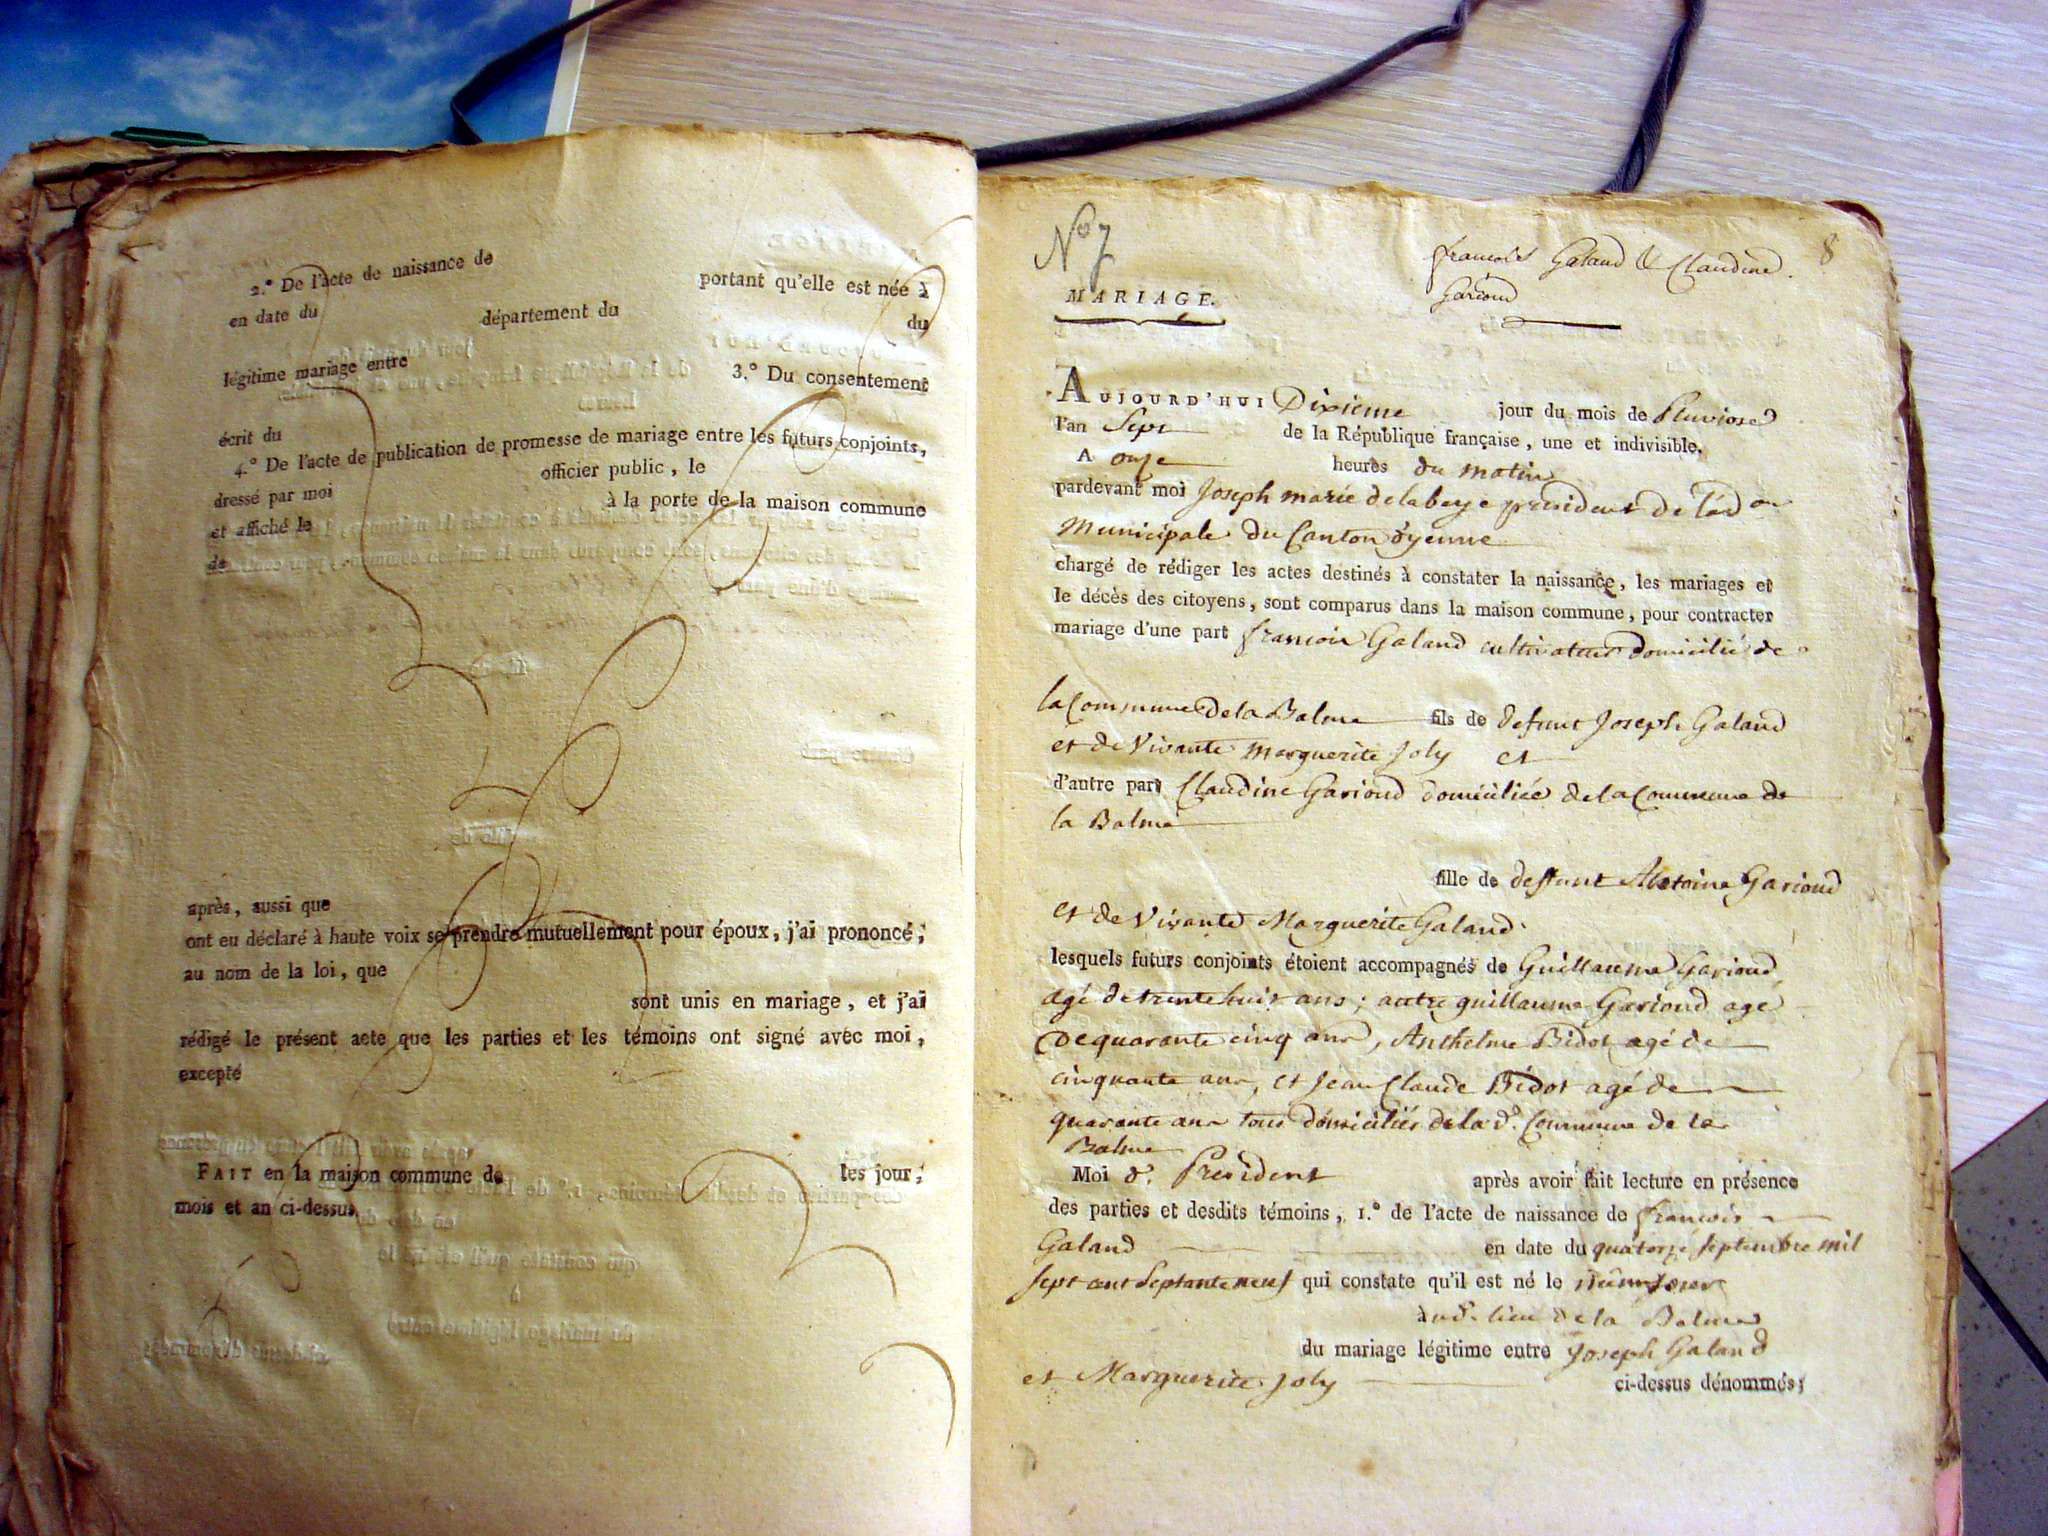 2.° De l'acte de naissance de
portant qu'elle est née à
en date du
département du
du
légitime mariage entre
3.° Du consentement
écrit du
4.° De l'acte de publication de promesse de mariage entre les futurs conjoints,
dressé par moi officier public, le
et affiché le à la porte de la maison commune
de
après, aussi que
ont eu déclaré à haute voix se prendre mutuellement pour époux, j'ai prononcé,
au nom de la loi, que
sont unis en mariage, et j'ai
rédigé le présent acte que les parties et les témoins ont signé avec moi,
excepté
FAIT en la maison commune de les jour,
mois et an ci-dessus
N° 7
françois Galand & Claudine 8
Gariond
MARIAGE.
AUJOURD'HUI Dixieme jour du mois de Pluviose
l'an Sept de la République française, une et indivisible.
A onze heures du matin
pardevant moi Joseph marie delabeye president de l'ad.on
Municipale du Canton d'yenne
chargé de rédiger les actes destinés à constater la naissance, les mariages et
le décès des citoyens, sont comparus dans la maison commune, pour contracter
mariage d'une part françois Galand cultivateur domicilié de
la Commune de la Balme fils de defunt Joseph Galand
et de Vivante Marguerite Joly et
d'autre part Claudine Gariond domiciliée de la Commune de
la Balme
fille de deffunt Antoine Gariond
et de Vivante Marguerite Galand
lesquels futurs conjoints étoient accompagnés de Guillaume Gariond
agé de trente huit ans; autre guillaume Gariond agé
de quarante cinq ans, Anthelme Bidot agé de
cinquante ans, et Jean Claude Bidot agé de
quarante ans tous domiciliés de la d.e Commune de la
Balme
Moi d.t President après avoir fait lecture en présence
des parties et desdits témoins, 1.° de l'acte de naissance de françois
Galand en date du quatorze septembre mil
sept cent septante neuf qui constate qu'il est né le même jour
aud.t lieu de la Balme
du mariage légitime entre Joseph Galand
et Marguerite Joly ci-dessus dénommés;